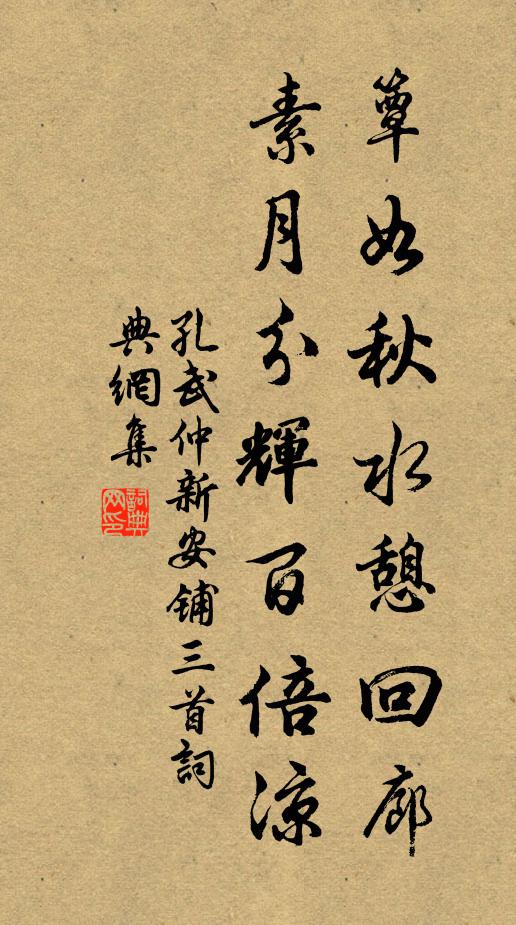 簟如秋水憩回廊
素月分輝百倍涼
孔武仲新安鋪三首詞
典網集
詞典網印